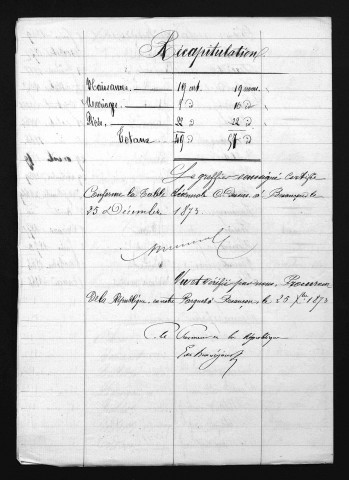 Récapitulation
Naissance 19 act. 19 noms
Mariage 8 d 16 d
Décès 22 d 22 d
Totaux 49 d 57 d
Le greffier soussigné certifie
Conforme la Table décennale à Besançon le
25 Décembre 1873
Vu et vérifié par nous, Procureur
De la République en notre Parquet à Besançon, le 25 Xbre 1873
Le Procureur de la République